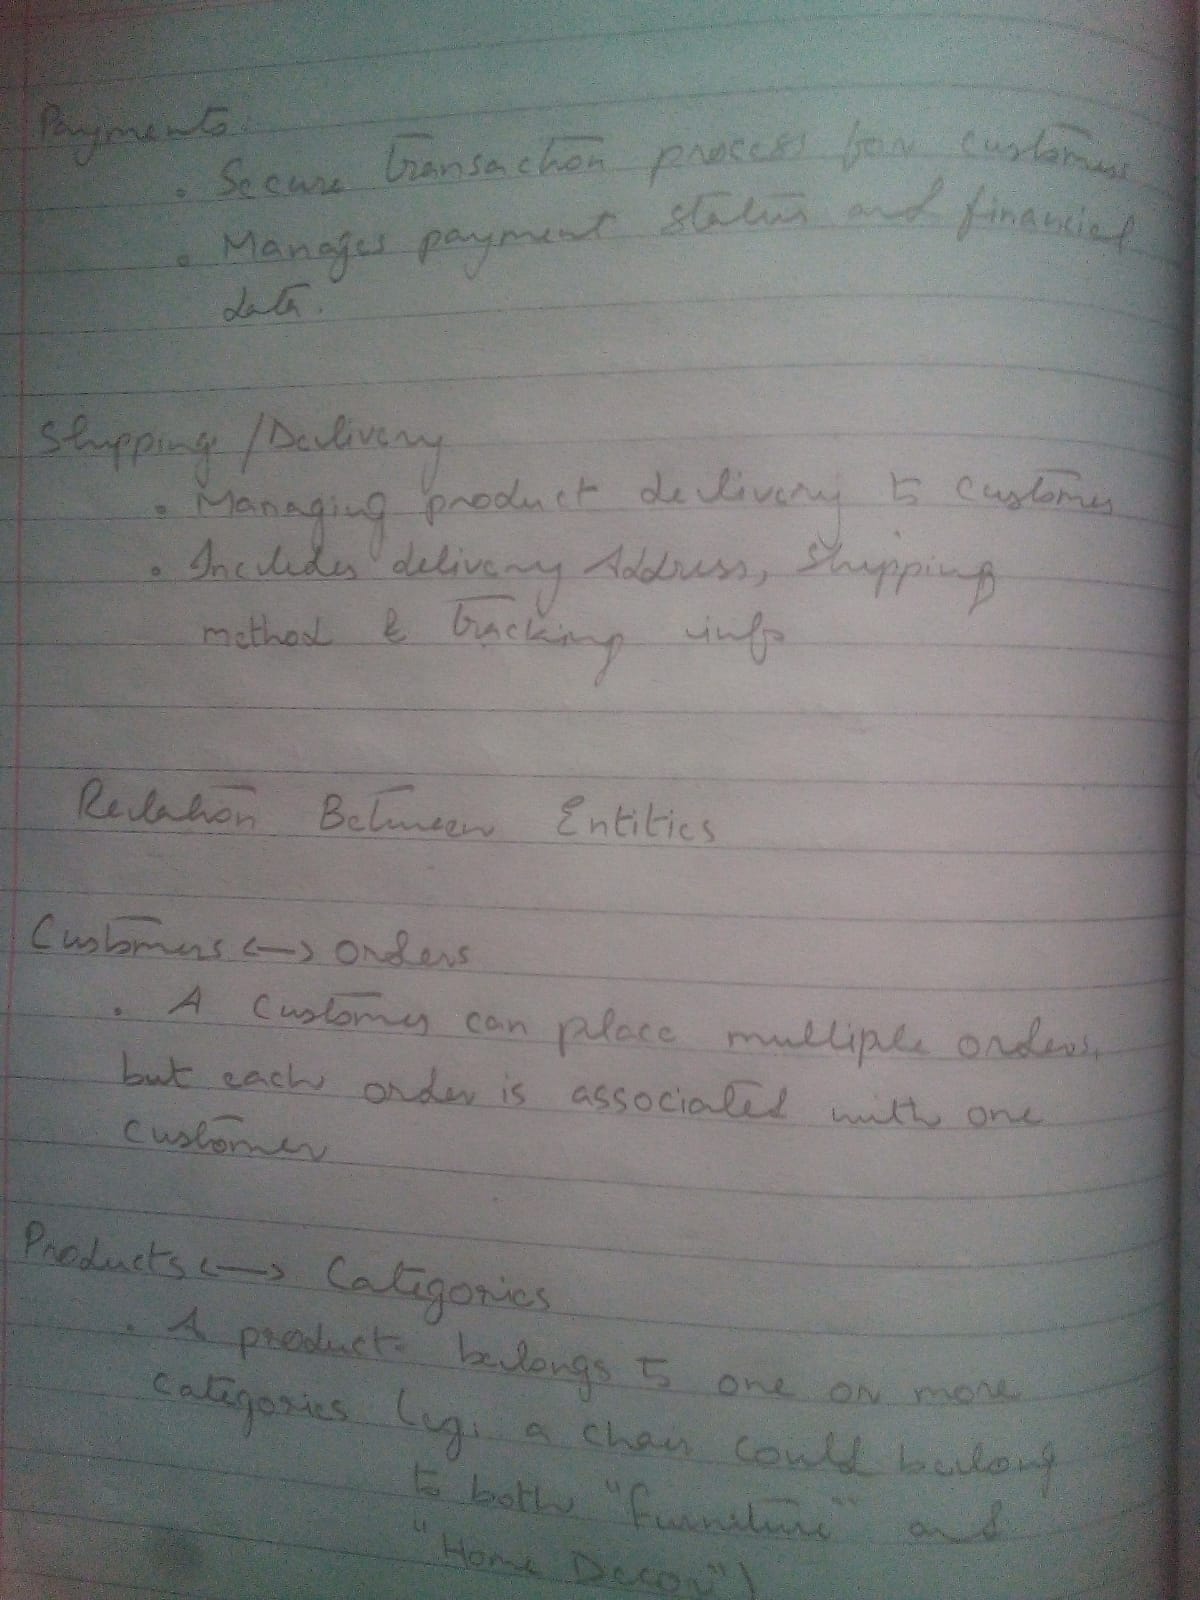 Payments:
• Secure transaction process for customers
• Manages payment status and financial
data.
Shipping /Delivery
• Managing product delivery to customer
• Includes delivery Address, Shipping
method & tracking info
Relation Between Entities
Customers <-> orders
• A customer can place multiple orders,
but each order is associated with one
customer
Products <-> Categories
• A product belongs to one or more
categories (eg. a chair could belong
to both "furniture" and
"Home Decor")